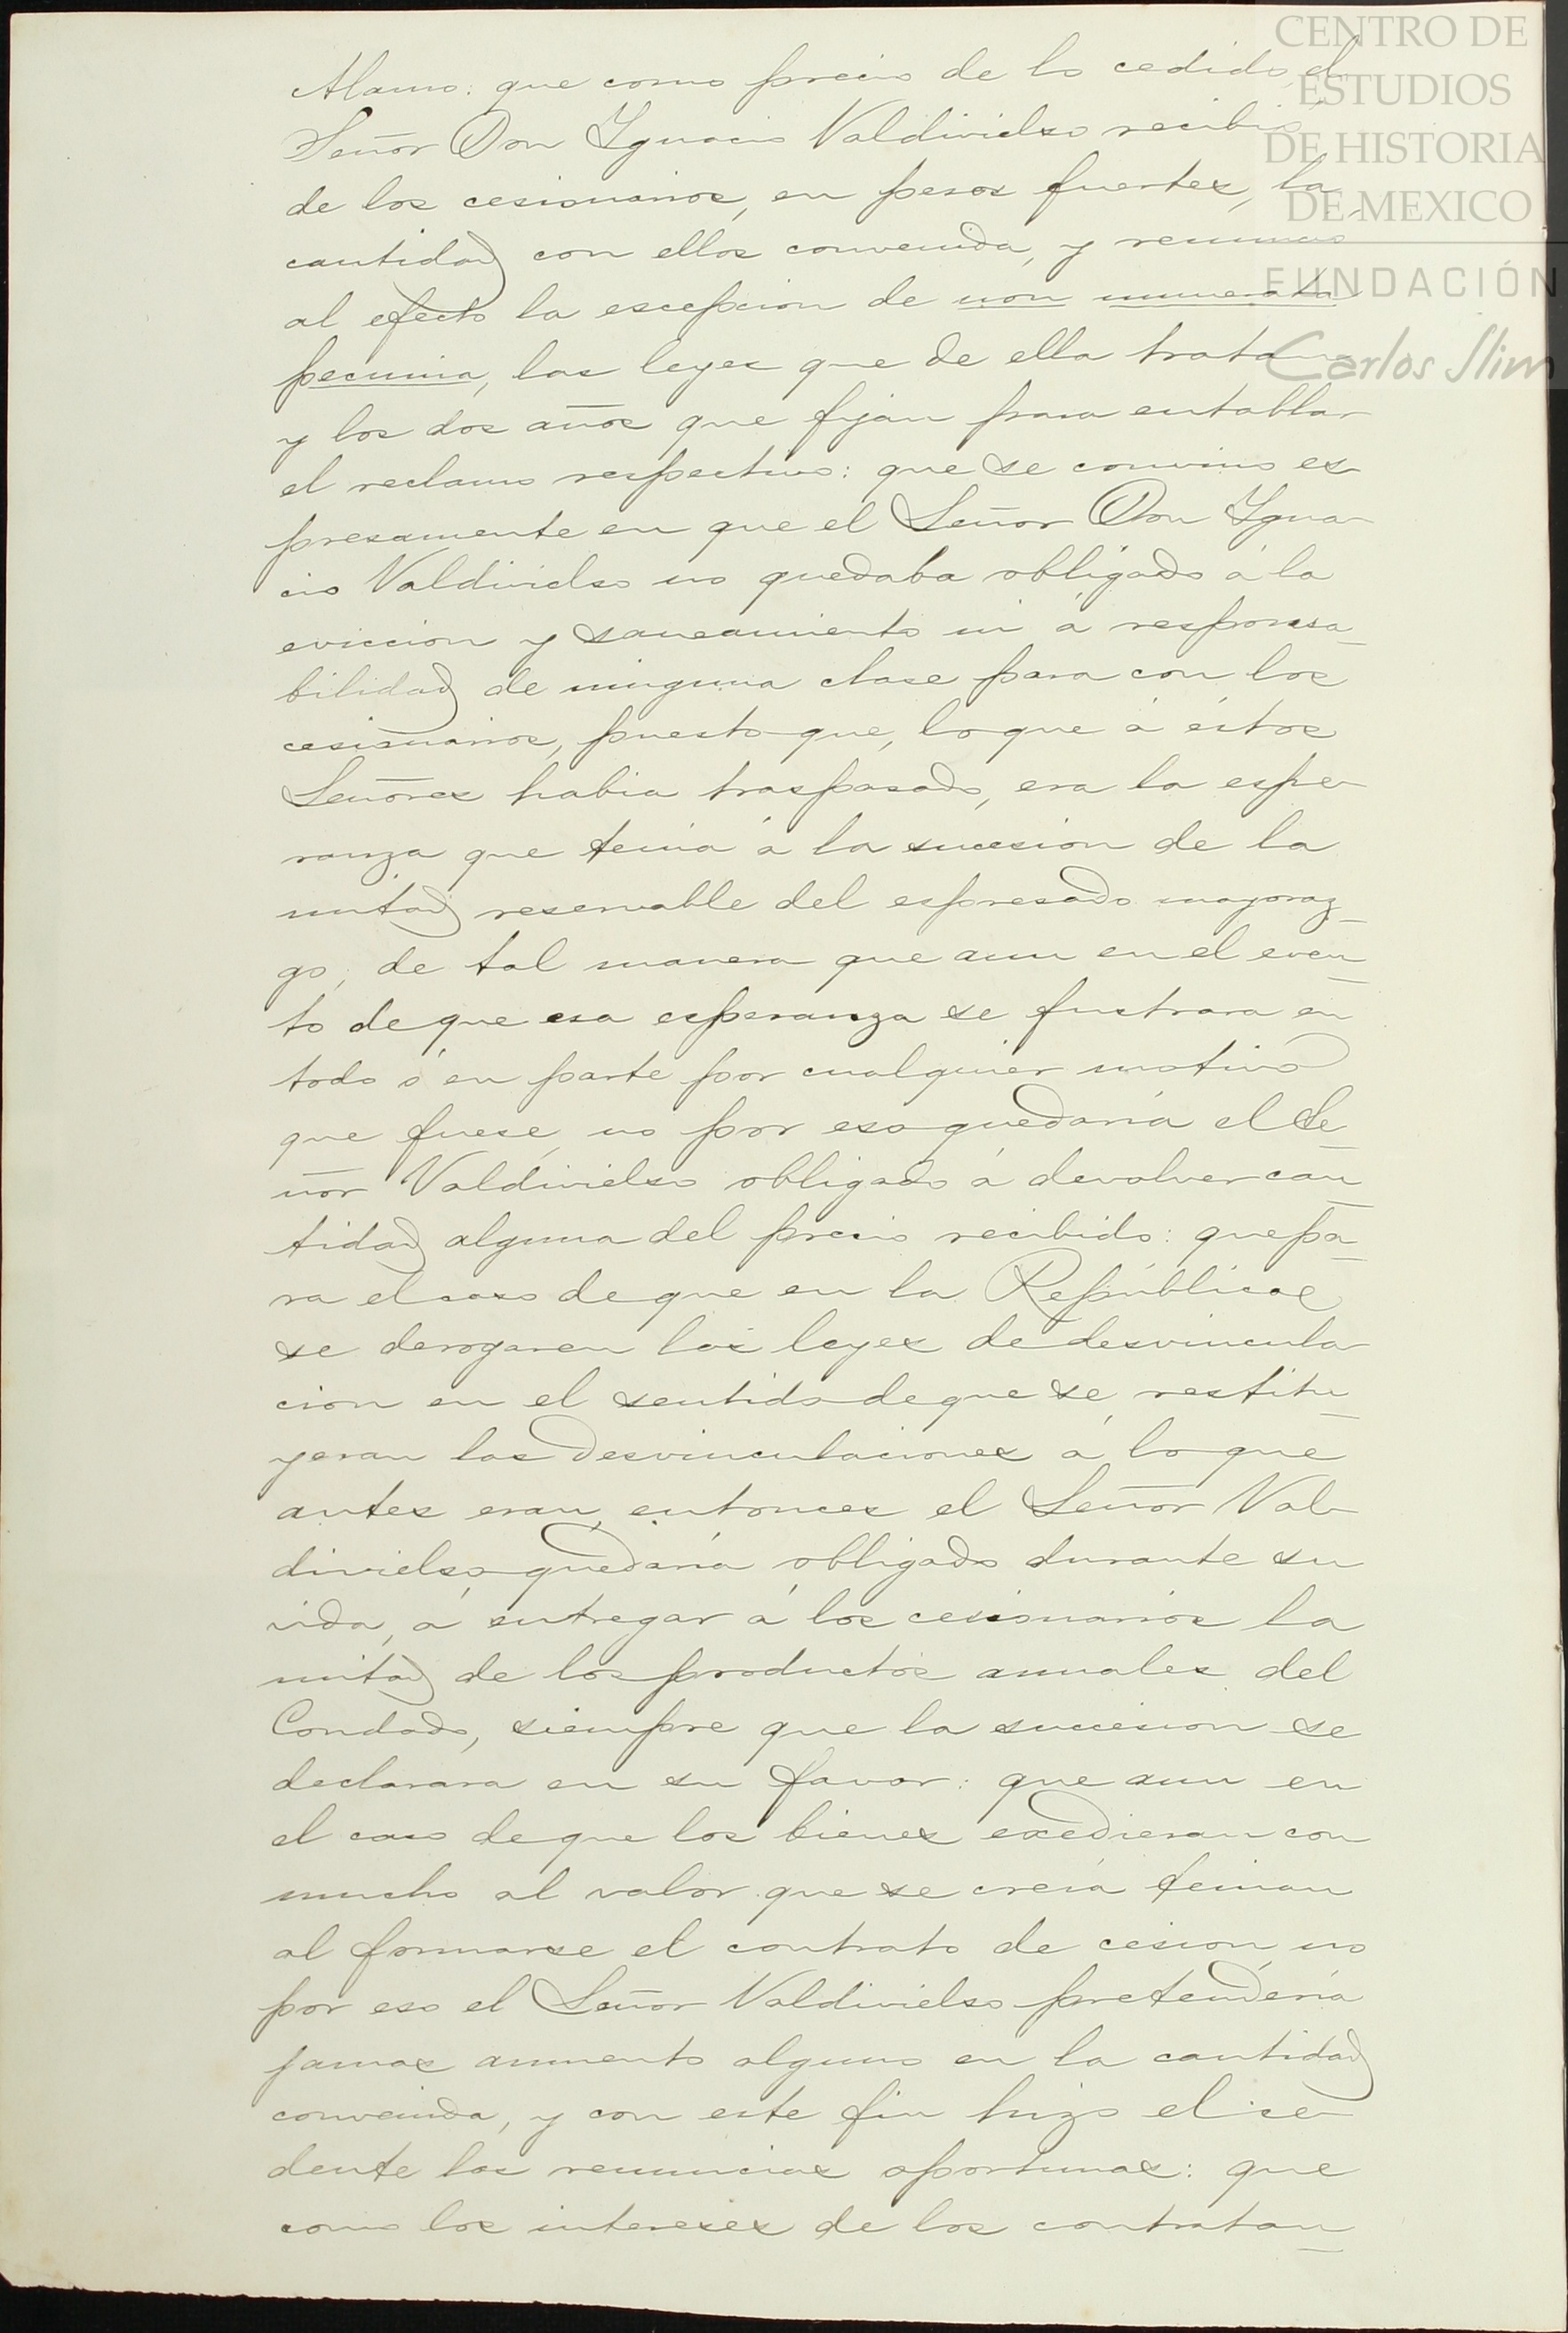 Alamo: que como precio de lo cedido el
Señor Don Ygnacio Valdivielso recibió
de los cesionarios, en pesos fuertes, la
cantidad con ellos convenida, y renuncio
al efecto la escepcion de non numerata
pecunia, las leyes que de ella tratan
y los dos años que fijan para entablar
el reclamo respectivo: que se convino es-
presamente en que el Señor Don Ygna-
cio Valdivielso no quedaba obligado á la
eviccion y saneamiento ni á responsa-
bilidad de ninguna clase para con los
cesionarios, puesto que, lo que á éstos
Señores habia traspasado, era la espe-
ranza que tenia á la sucesion de la
mitad reservable del espresado mayoraz-
go, de tal manera que aun en el even-
to de que esa esperanza se frustrara en
todo ó en parte por cualquier motivo
que fuese, no por eso quedaria el Se-
ñor Valdivielso obligado á devolver can-
tidad alguna del precio recibido: que pa-
ra el caso de que en la República
se derogaren las leyes de desvincula-
cion en el sentido de que se restitu-
yeran las desvinculaciones á lo que
antes eran, entonces el Señor Val-
divielso quedaria obligado durante su
vida, á entregar á los cesionarios la
mitad de los productos anuales del
Condado, siempre que la sucesion se
declarara en su favor: que aun en
el caso de que los bienes excedieran con
mucho al valor que se creia tenian
al formarse el contrato de cesion, no
por eso el Señor Valdivielso pretenderia
jamas aumento alguno en la cantidad
convenida, y con este fin hizo el ce-
dente las renuncias oportunas: que
como los intereses de los contratan-
CENTRO DE
ESTUDIOS
DE HISTORIA
DE MEXICO
FUNDACIÓN
Carlos Slim